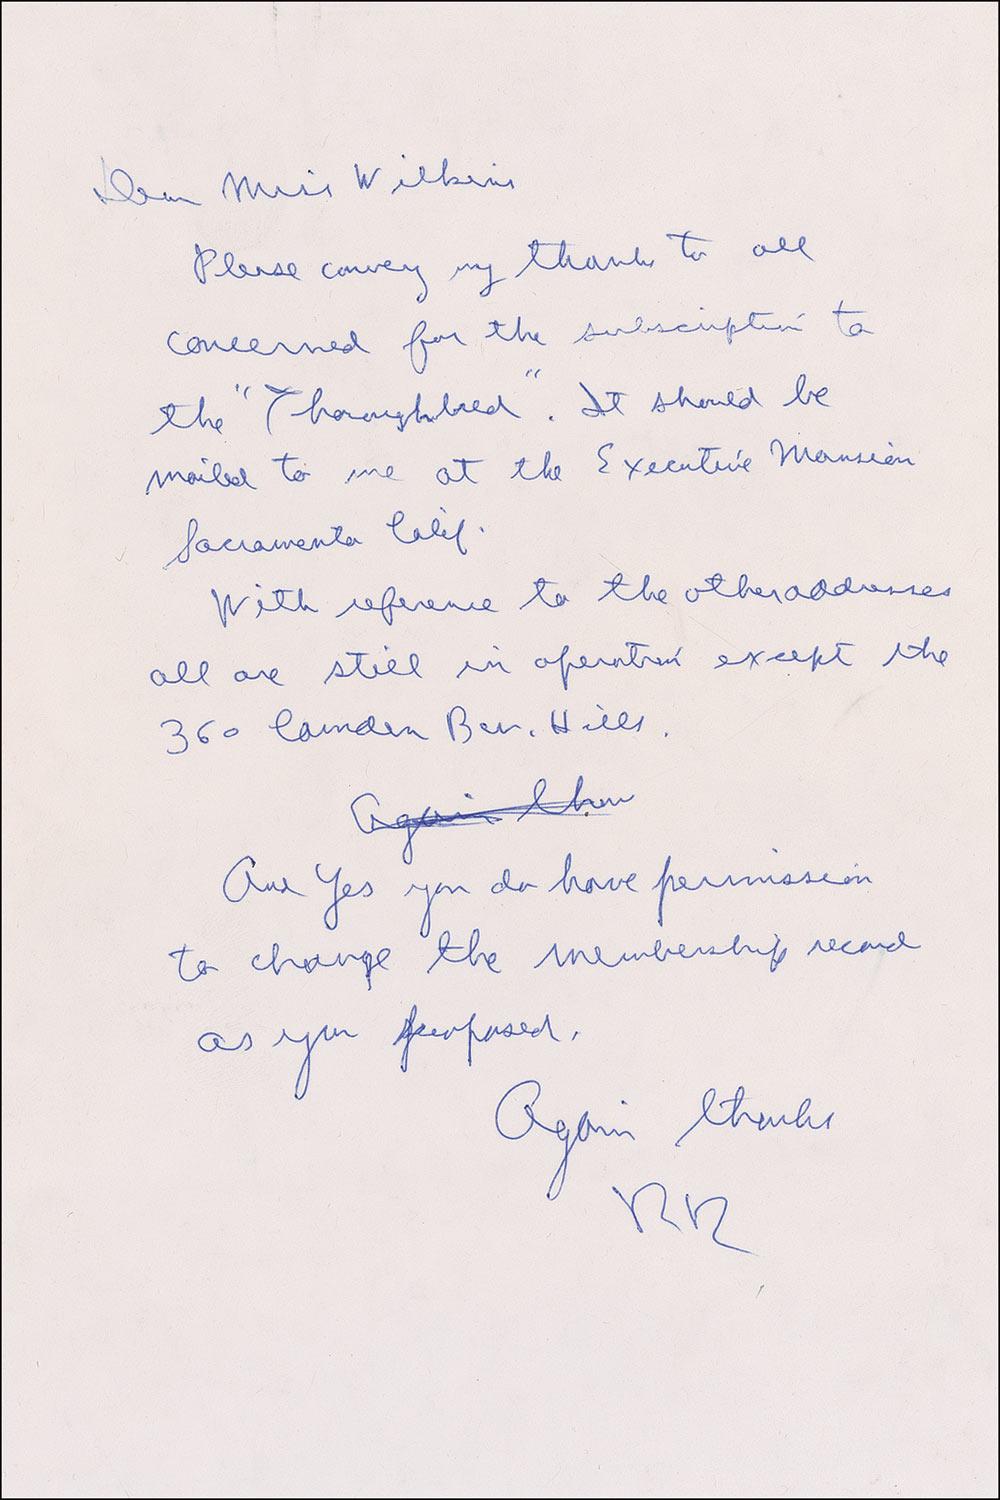 Dear Miss Wilkins
Please convey my thanks to all
concerned for the subscription to
the "Thoroughbred". It should be
mailed to me at the Executive Mansion
Sacramento Calif.
With reference to the other addresses
all are still in operation except the
360 Camden Bev. Hills.
Again than
And Yes you do have permission
to change the membership record
as you proposed.
Again thanks
RR